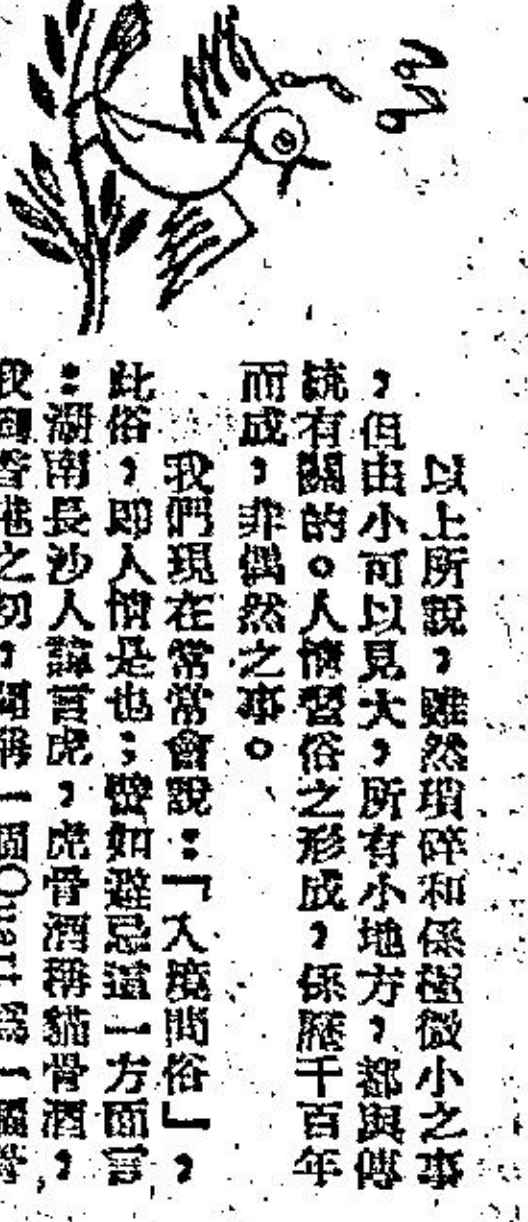 以上所說，雖然瑣碎和係極微小之事
，但由小可以見大，所有小地方，都與傳
統有關的。人情習俗之形成，係歷千百年
而成，非偶然之事。
我們現在常常會說：「入境問俗」，
此俗，即人情是也；譬如避忌這一方面言
：湖南長沙人諱言虎，虎骨酒稱貓骨酒，
我國香港之初，稱一個Quart為一個骨